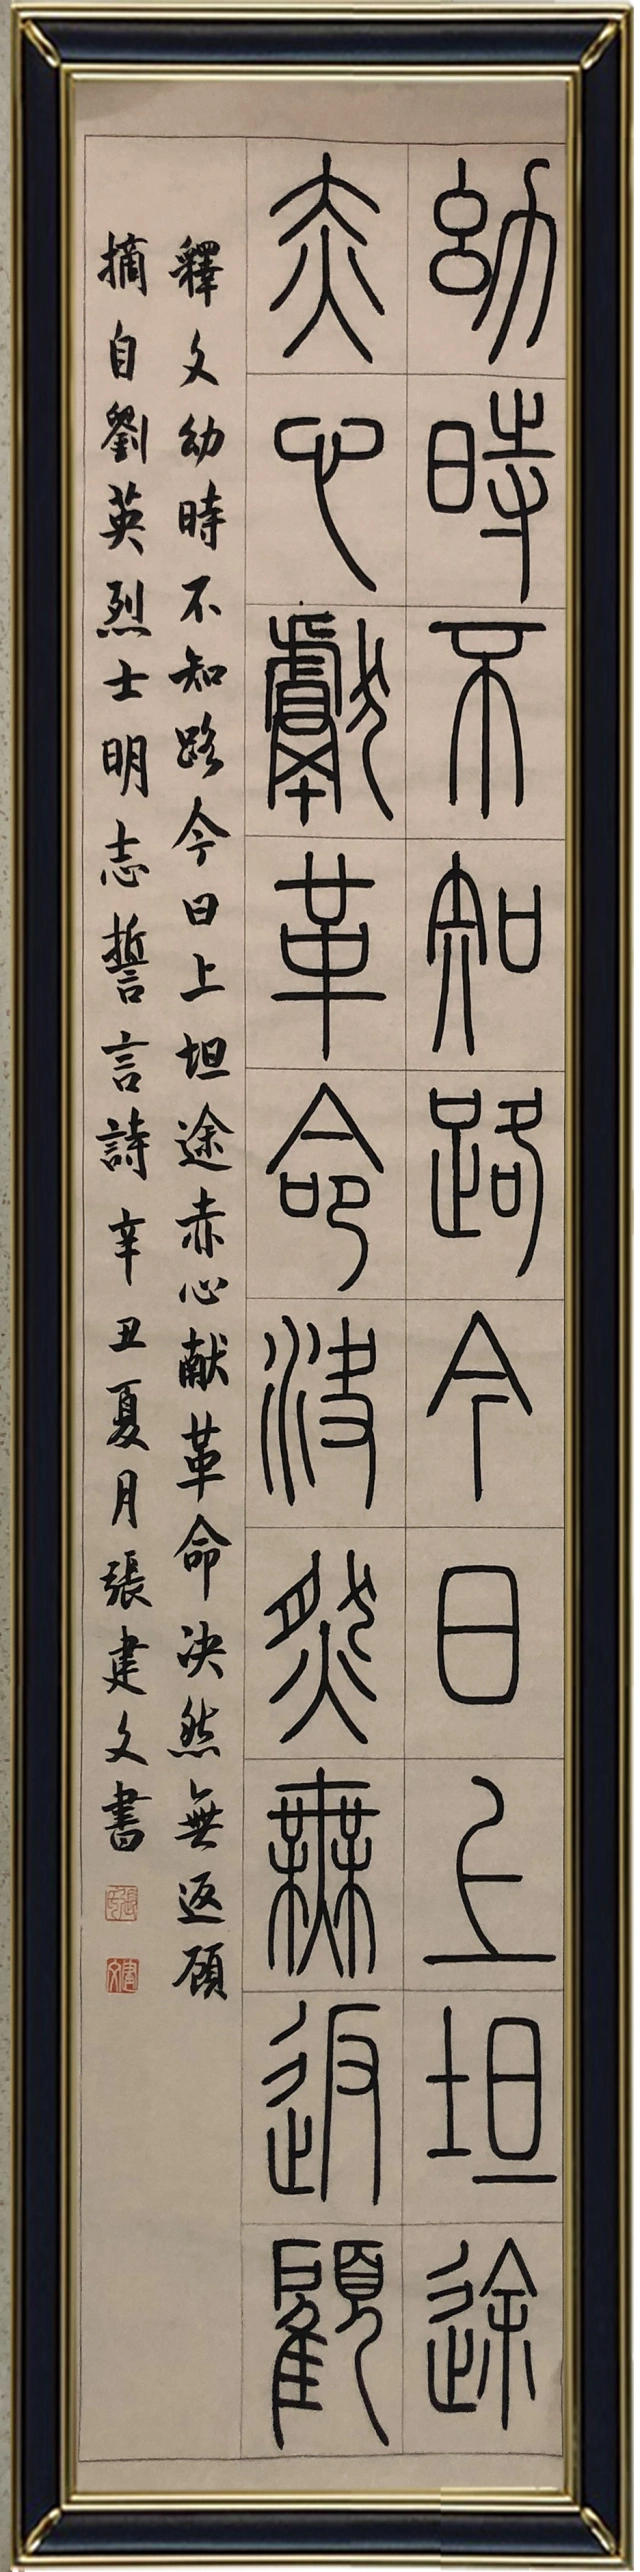 幼時不知路今日上坦途
赤心獻革命決然無返顧
釋文幼時不知路今日上坦途赤心献革命决然無返顾
摘自劉英烈士明志誓言詩辛丑夏月張建文書